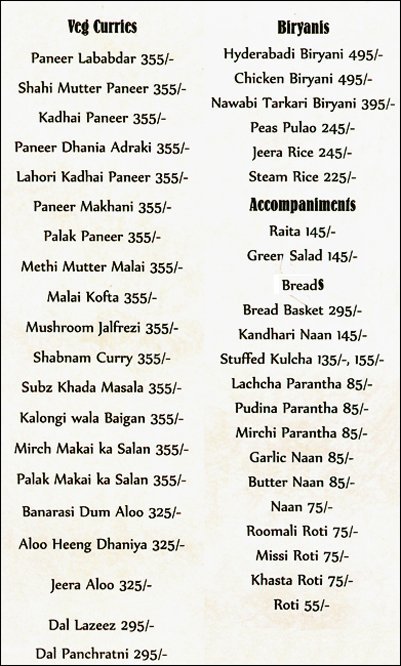 Veg Curries
Paneer Lababdar 355/-
Shahi Mutter Paneer 355/-
Kadhai Paneer 355/-
Paneer Dhania Adraki 355/-
Lahori Kadhai Paneer 355/-
Paneer Makhani 355/-
Palak Paneer 355/-
Methi Mutter Malai 355/-
Malai Kofta 355/-
Mushroom Jalfrezi 355/-
Shabnam Curry 355/-
Subz Khada Masala 355/-
Kalongi wala Baigan 355/-
Mirch Makai ka Salan 355/-
Palak Makai ka Salan 355/-
Banarasi Dum Aloo 325/-
Aloo Heeng Dhaniya 325/-
Jeera Aloo 325/-
Dal Lazeez 295/-
Dal Panchratni 295/-
Biryanis
Hyderabadi Biryani 495/-
Chicken Biryani 495/-
Nawabi Tarkari Biryani 395/-
Peas Pulao 245/-
Jeera Rice 245/-
Steam Rice 225/-
Accompaniments
Raita 145/-
Green Salad 145/-
Breads
Bread Basket 295/-
Kandhari Naan 145/-
Stuffed Kulcha 135/-, 155/-
Lachcha Parantha 85/-
Pudina Parantha 85/-
Mirchi Parantha 85/-
Garlic Naan 85/-
Butter Naan 85/-
Naan 75/-
Roomali Roti 75/-
Missi Roti 75/-
Khasta Roti 75/-
Roti 55/-